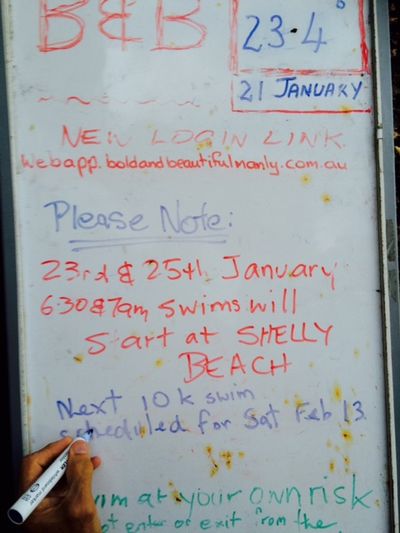 B&B
23.4°
21 JANUARY
NEW LOGIN LINK
webapp.boldandbeautifulmanly.com.au
Please Note:
23rd & 25th January
6:30&7am Swims will
Start at SHELLY
BEACH
Next 10k swim
scheduled for Sat Feb 13
at your own risk
enter or exit from the